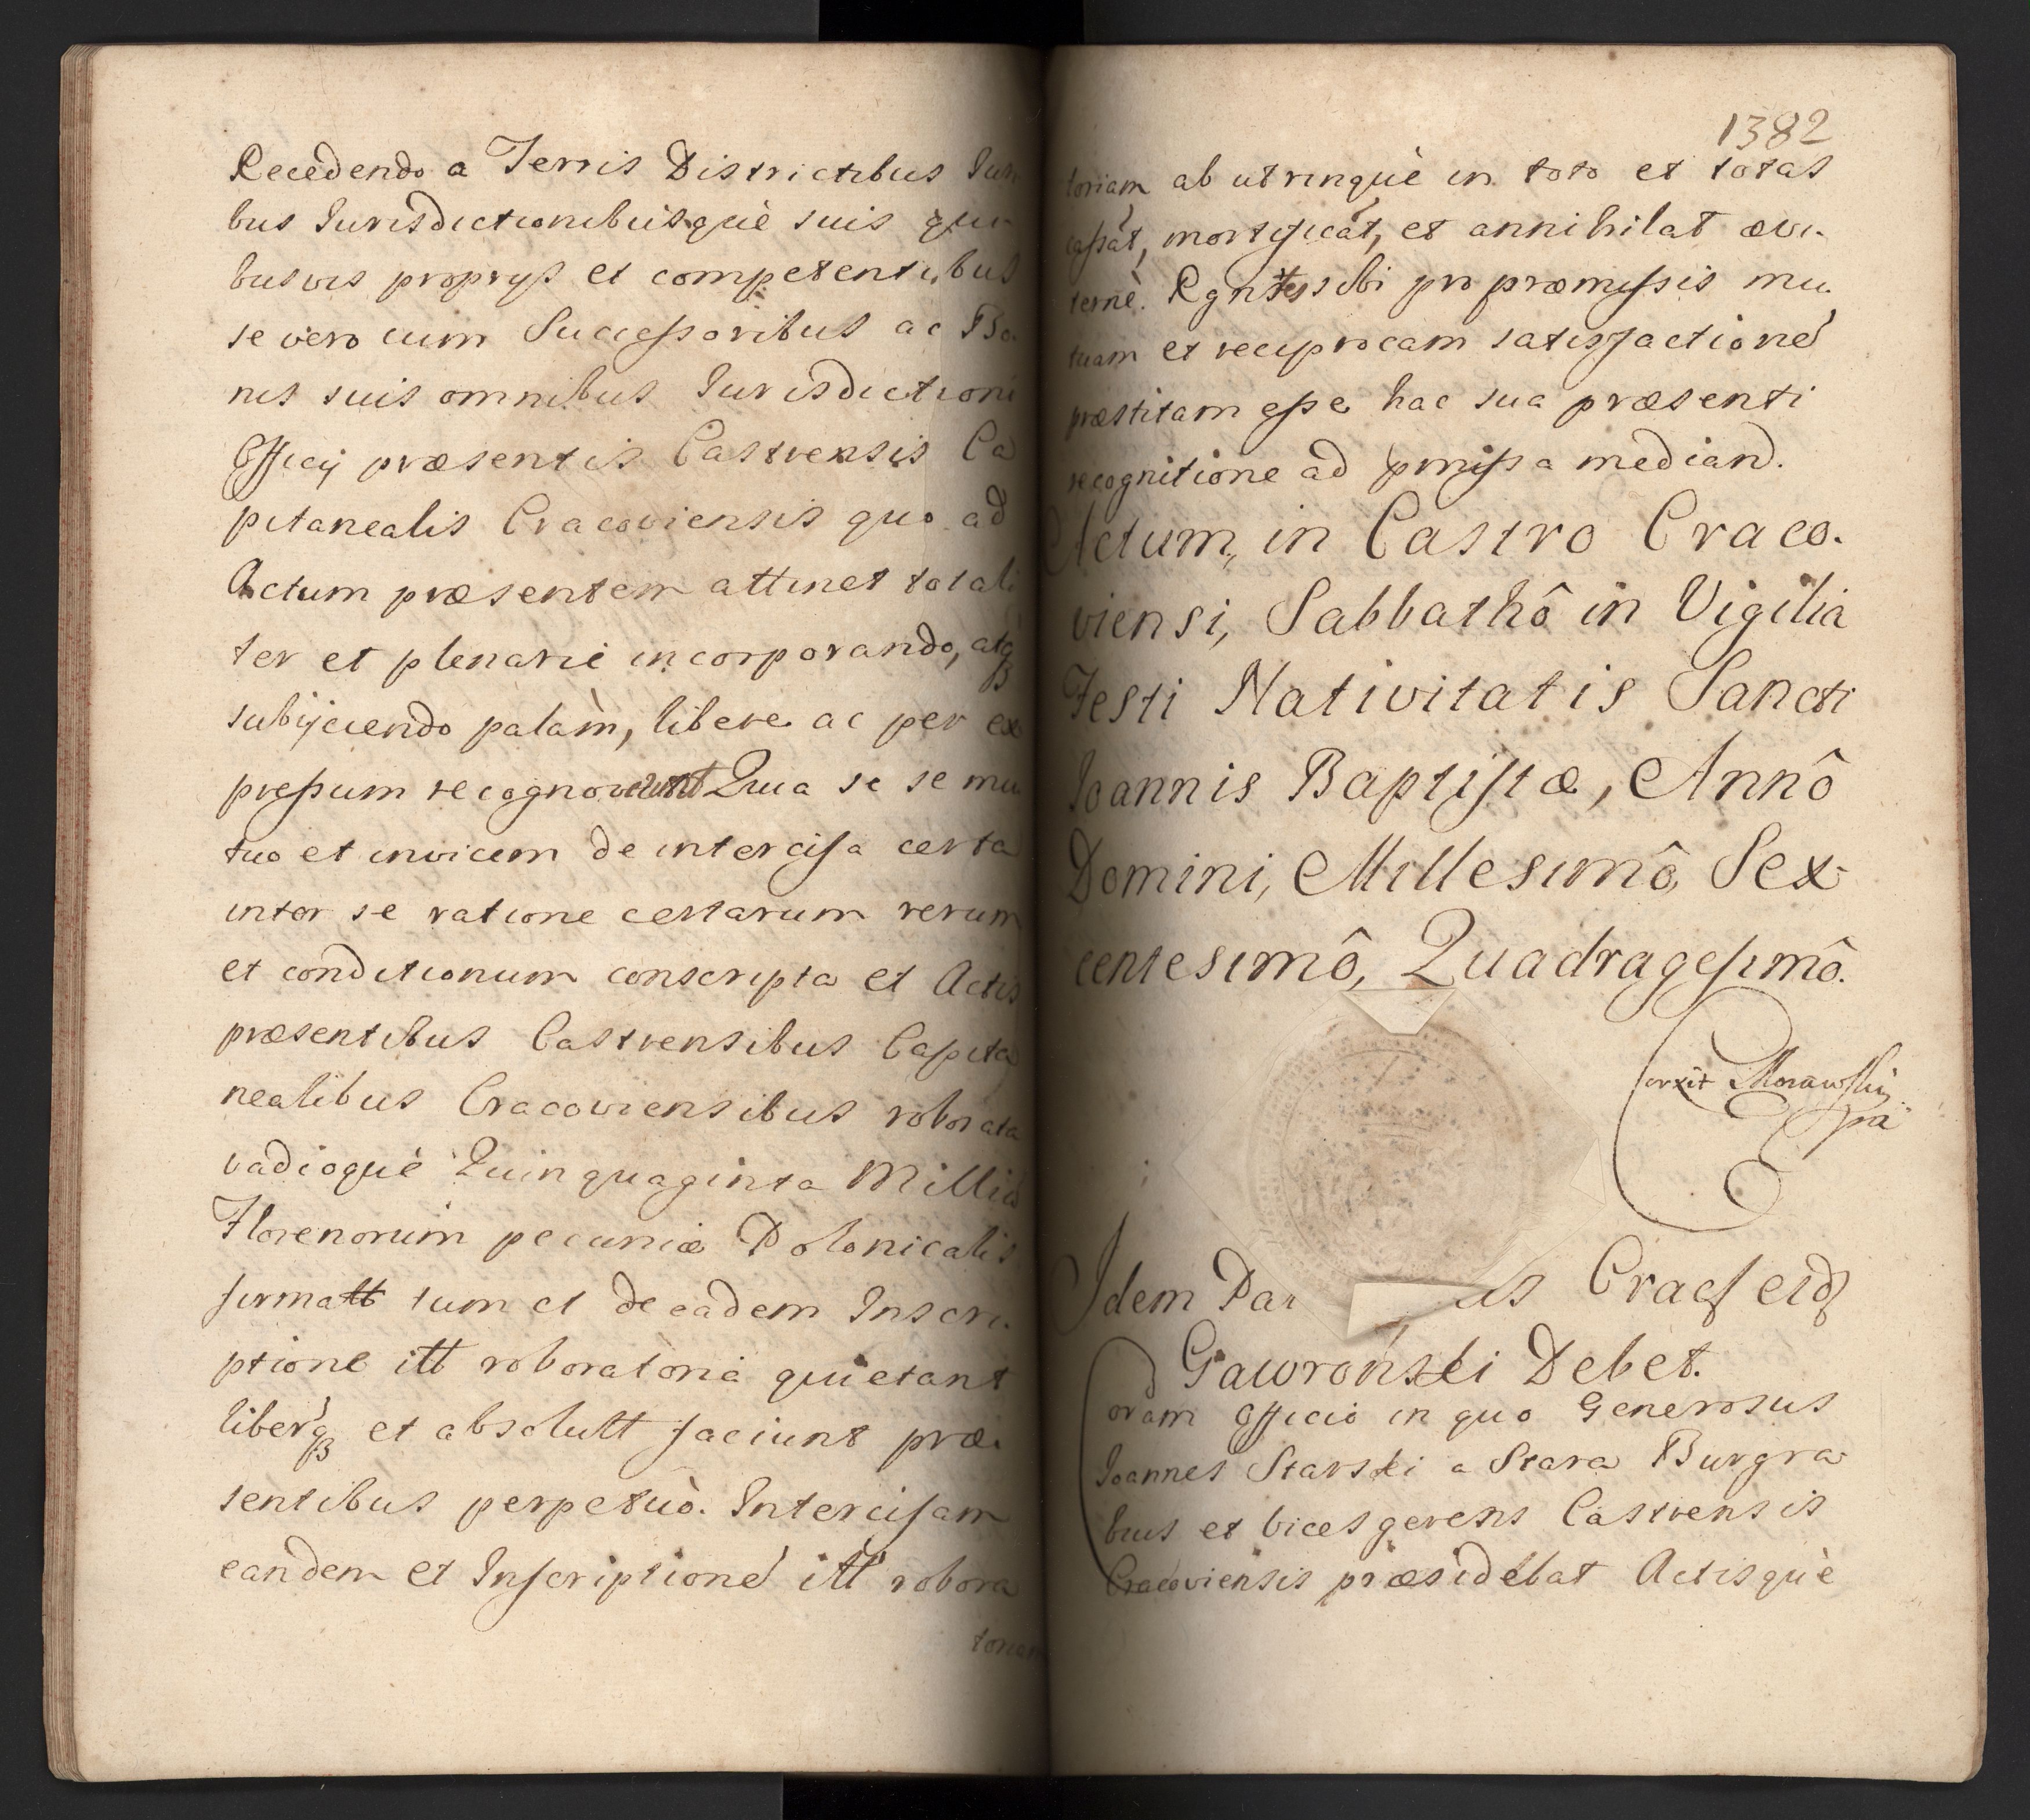 Recedendo a Terris Districtibus Iuri
bus Iurisdictionibusquè suis qui
busvis propryis et competentibus
se vero cum Successoribus ac Bo.
nis suis omnibus Iurisdictioni
Officij præsentis Castrensis Ca
pitanealis Cracoviensis quo ad
Actum præsentem attinet totali
ter et plenarie incorporando, atq
subijciendo palàm, libere ac per ex
pressum recognoverunt Quia se se mu
tuo et invicem de intercisa certa
inter se ratione certarum rerum
et conditionum conscripta et Actis
præsentibus Castrensibus Capita
nealibus Cracoviensibus roborata
vadioquè Quinquaginta Millia
Florenorum pecuniæ Polonicalis
firmatt tum et de eadem Inscri.
ptione itt roboratoria quietant
liberq et absolutt faciunt præ.
sentibus perpetuò. Intercisam
eandem et Inscriptioné itt robora
toriam
1382
toriam ab utrinquè in toto et totas
cassat, mortificat, et annihilat ævi.
ternè. Rgntes sibi pro præmissis mu.
tuam et reciprocam satisfactioné
præstitam esse hac sua præsenti
recognitione ad pmissa mediand.
Actum, in Castro Craco.
viensi, Sabbathô in Vigilia
Festi Nativitatis Sancti
Ioannis Baptistæ, Annô
Domini, Millesimô, Sex
centesimô, Quadragesimô.
Corxit Morawski
mpa
Idem Cracs eid
Gawronski Debet.
Coram Officio in quo Generosus
Ioannes Starski a Stara Burgra
bius et Vices gerens Castrensis
Cracoviensis præsidebat Actisquè